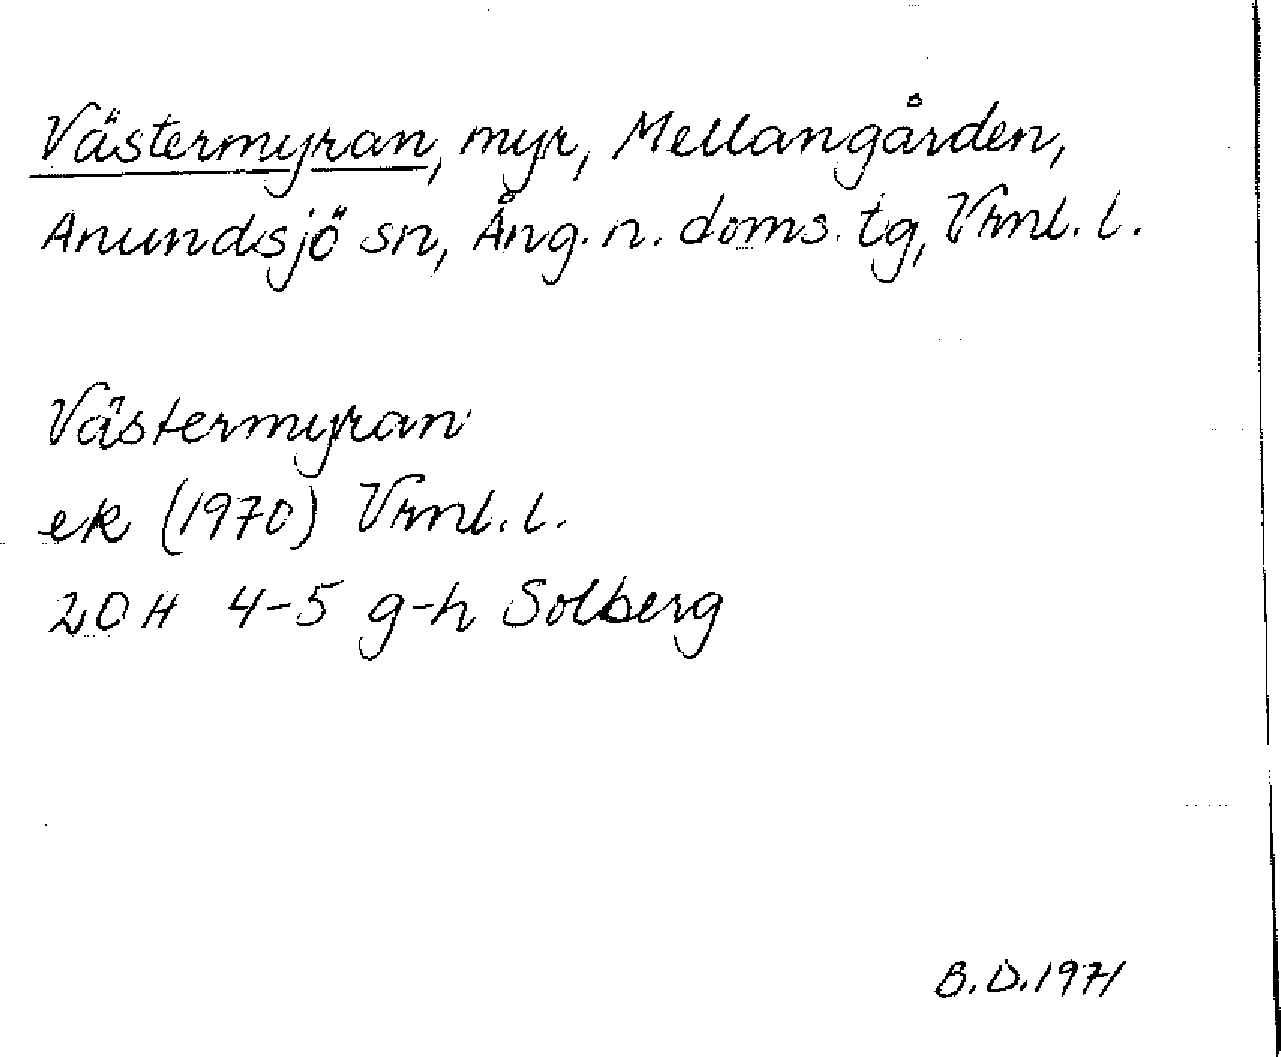 Västermyran, myr, Mellangården,
Anundsjö sn, Ång. n. doms. tg, Vrnl. l.
Västermyran
ek (1970) Vrnl. l.
20H 4-5 g-h Solberg
B.D.1971